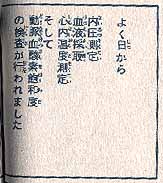 よく日から
内圧測定
血液採取
心内温度測定
そして
動脈血酸素飽和度
の検査が行われました